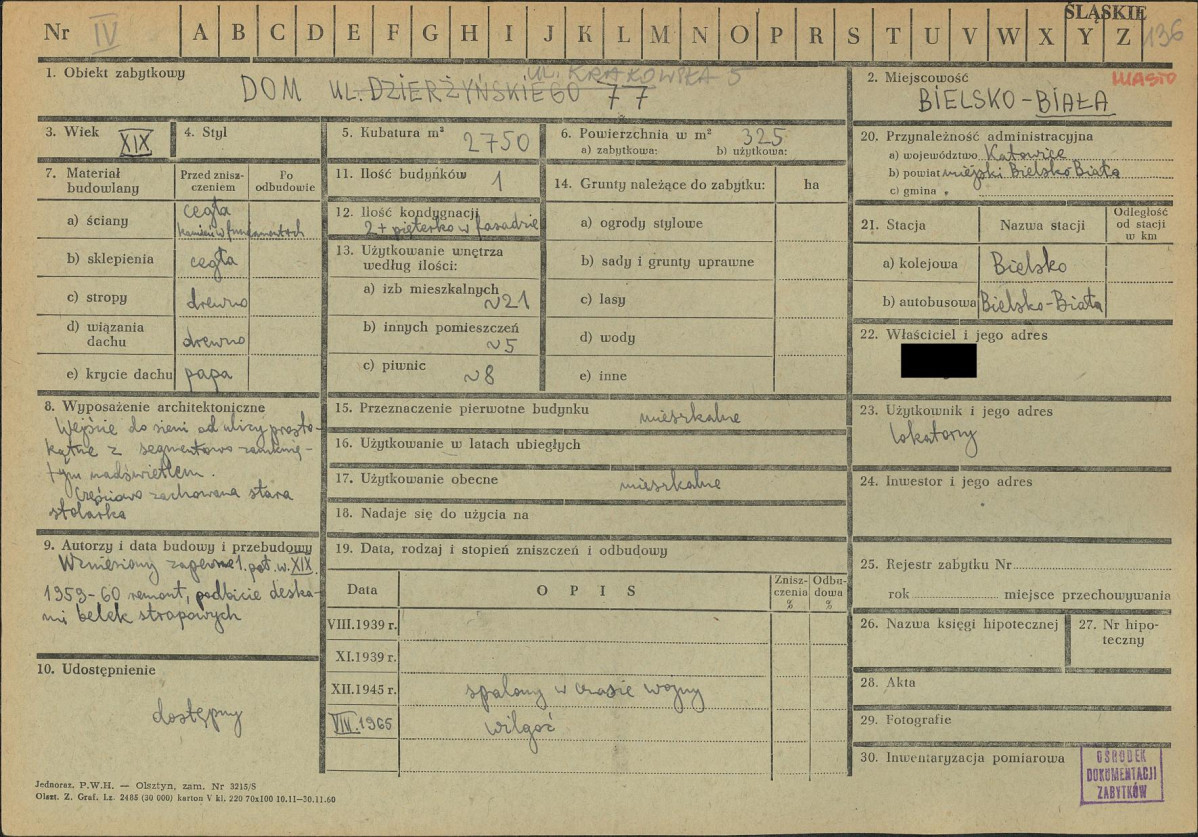 ŚLĄSKIE
Nr IV A B C D E F G H I J K L M N O P R S T U V W X Y Z 136
1. Obiekt zabytkowy
UL. KRAKOWSKA 5
DOM UL. DZIERŻYŃSKIEGO 77
2. Miejscowość MIASTO
BIELSKO-BIAŁA
3. Wiek XIX
4. Styl
5. Kubatura m³ 2750
6. Powierzchnia w m² 325
a) zabytkowa: b) użytkowa:
20. Przynależność administracyjna
a) województwo Katowice
b) powiat miejski Bielsko Biała
c) gmina
7. Materiał budowlany
Przed zniszczeniem
Po odbudowie
a) ściany cegła
kamień w fundamentach
b) sklepienia cegła
c) stropy drewno
d) wiązania dachu drewno
e) krycie dachu papa
11. Ilość budynków 1
12. Ilość kondygnacji
2 + pięterko w fasadzie
13. Użytkowanie wnętrza
według ilości:
a) izb mieszkalnych
~21
b) innych pomieszczeń
~5
c) piwnic
~8
14. Grunty należące do zabytku: ha
a) ogrody stylowe
b) sady i grunty uprawne
c) lasy
d) wody
e) inne
21. Stacja Nazwa stacji Odległość od stacji w km
a) kolejowa Bielsko
b) autobusowa Bielsko-Biała
22. Właściciel i jego adres
8. Wyposażenie architektoniczne
Wejście do sieni od ulicy prosto-
kątne z segmentowo zamknię-
tym nadświetlem.
Częściowo zachowana stara
stolarka
15. Przeznaczenie pierwotne budynku mieszkalne
16. Użytkowanie w latach ubiegłych
17. Użytkowanie obecne mieszkalne
18. Nadaje się do użycia na
23. Użytkownik i jego adres
lokatorzy
24. Inwestor i jego adres
9. Autorzy i data budowy i przebudowy
Wzniesiony zapewne 1. poł. w. XIX.
1959-60 remont, podbicie deska-
mi belek stropowych
10. Udostępnienie
dostępny
19. Data, rodzaj i stopień zniszczeń i odbudowy
Data OPIS Zniszczenia % Odbudowa %
VIII.1939 r.
XI.1939 r.
XII.1945 r. spalony w czasie wojny
VIII.1965 wilgoć
25. Rejestr zabytku Nr
rok miejsce przechowywania
26. Nazwa księgi hipotecznej
27. Nr hipo-
teczny
28. Akta
29. Fotografie
30. Inwentaryzacja pomiarowa
OŚRODEK
DOKUMENTACJI
ZABYTKÓW
Jednoraz. P.W.H. — Olsztyn, zam. Nr 3215/S
Olszt. Z. Graf. Lz. 2485 (30 000) karton V kl. 220 70x100 10.11—30.11.60